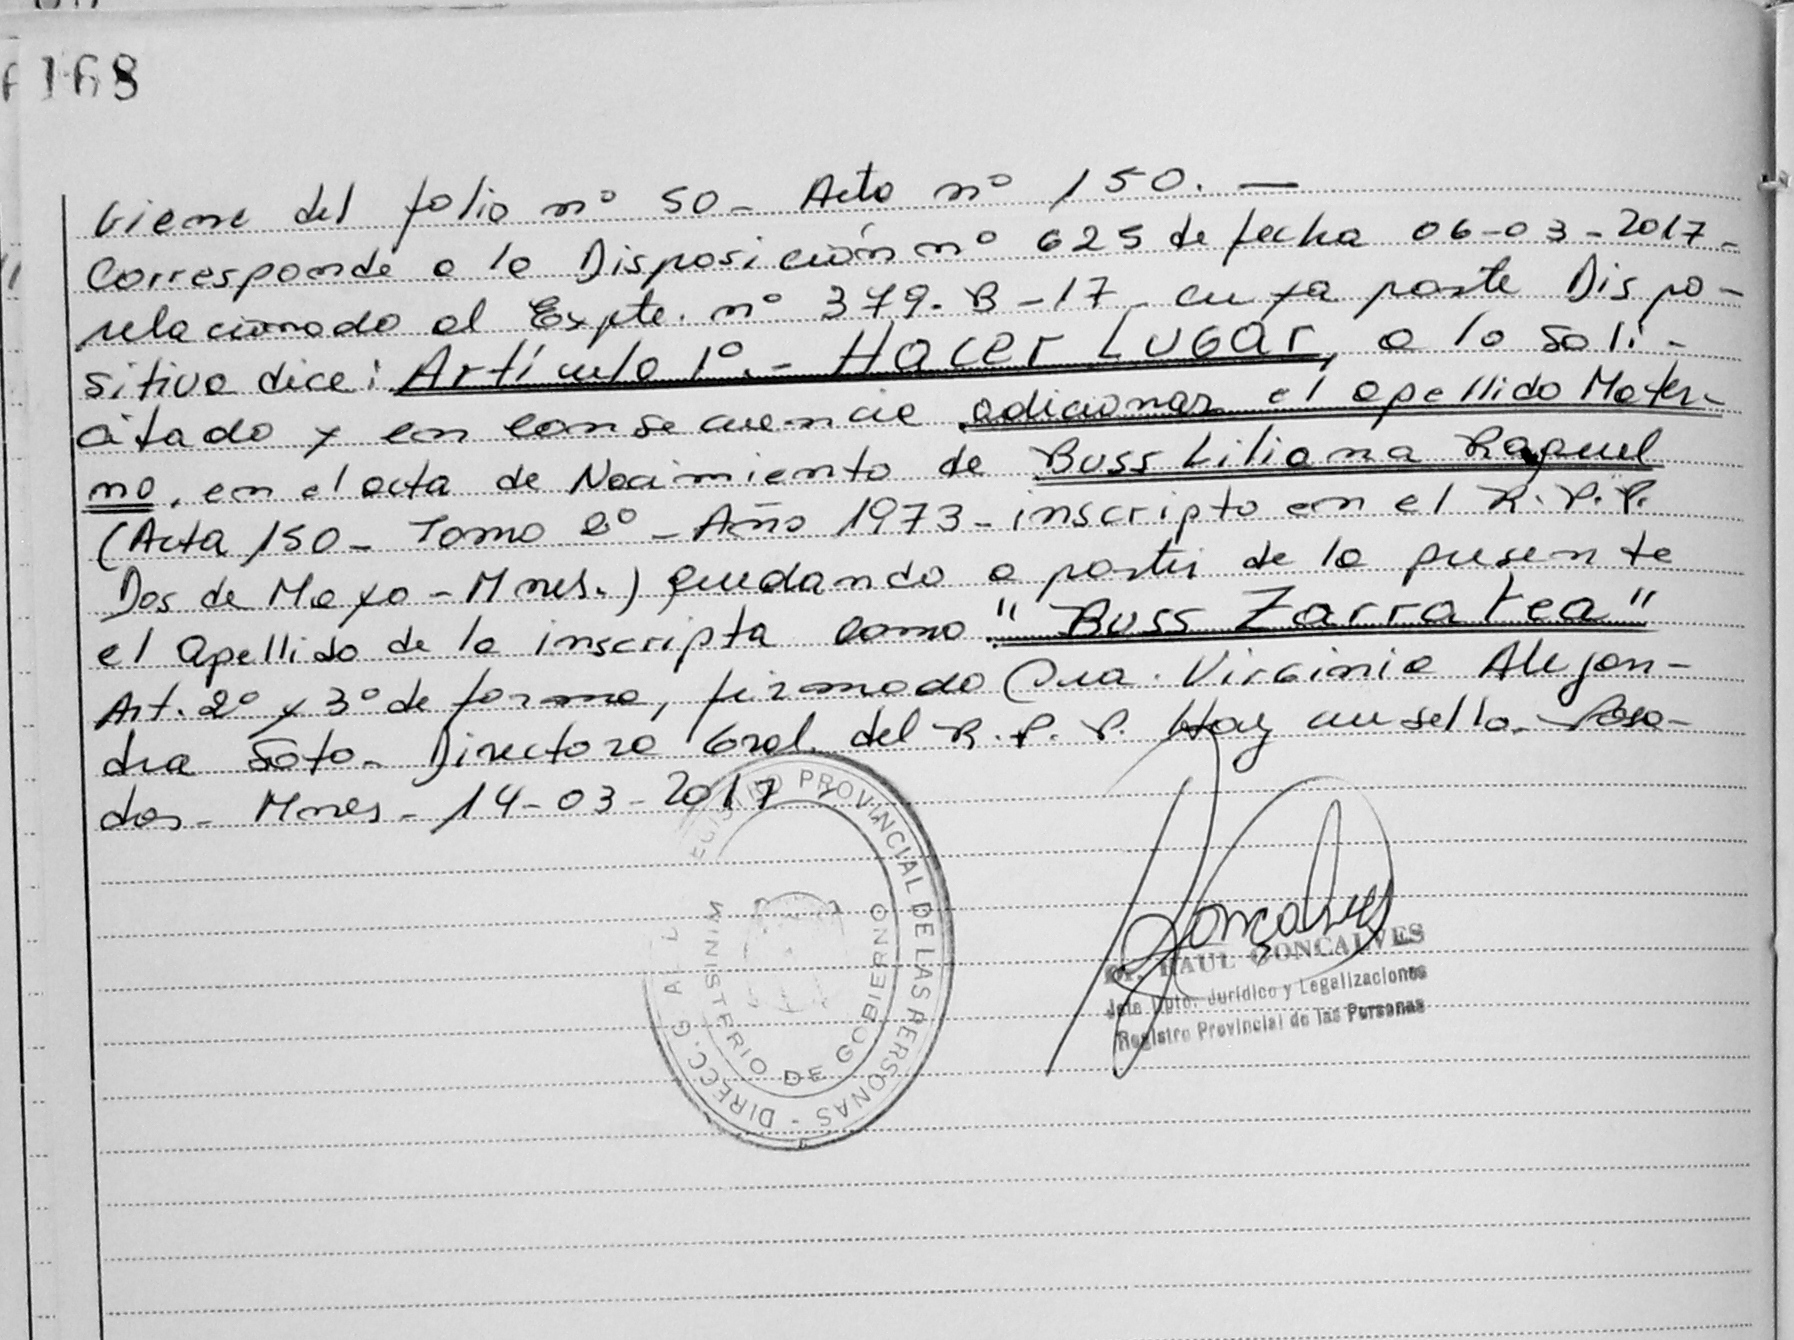 168
Viene del folio nº 50 - Acta nº 150. —
Corresponde a la Disposición nº 625 de fecha 06-03-2017-
relacionado al Expte. nº 379-B-17- cuya parte Dispo-
sitiva dice: Artículo 1º.- HACER LUGAR, a lo soli-
citado y en consecuencia adicionar el apellido Mater-
no, en el acta de Nacimiento de Buss Liliana Raquel
(Acta 150 - Tomo 2º - Año 1973 - inscripto en el R.P.P.
Dos de Mayo - Mnes.) quedando a partir de la presente
el Apellido de la inscripta como "Buss Zarratea"
Art. 2º y 3º de forma, firmado Dra. Virginia Alejan-
dra Soto - Directora Gral. del R.P.P. Hay un sello. Posa-
das - Mnes - 14-03-2017
DIRECC. G AL REGISTRO PROVINCIAL DE LAS PERSONAS -
MINISTERIO DE GOBIERNO
Gonçalves
Dr. RAUL GONCALVES
Jefe Dpto. Jurídico y Legalizaciones
Registro Provincial de las Personas